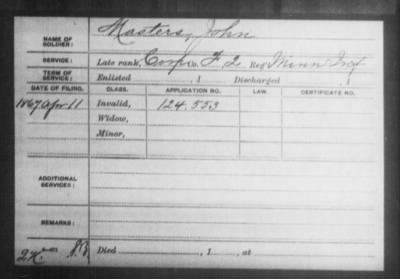 NAME OF SOLDIER: Masters, John
SERVICE: Late rank, Corp Co. F, 2 Reg't Minn Inf
TERM OF SERVICE: Enlisted , 1 Discharged , 1
DATE OF FILING. CLASS. APPLICATION NO. LAW. CERTIFICATE NO.
1867 Apr 11 Invalid, 124.553
Widow,
Minor,
ADDITIONAL SERVICES:
REMARKS:
Died , 1 , at